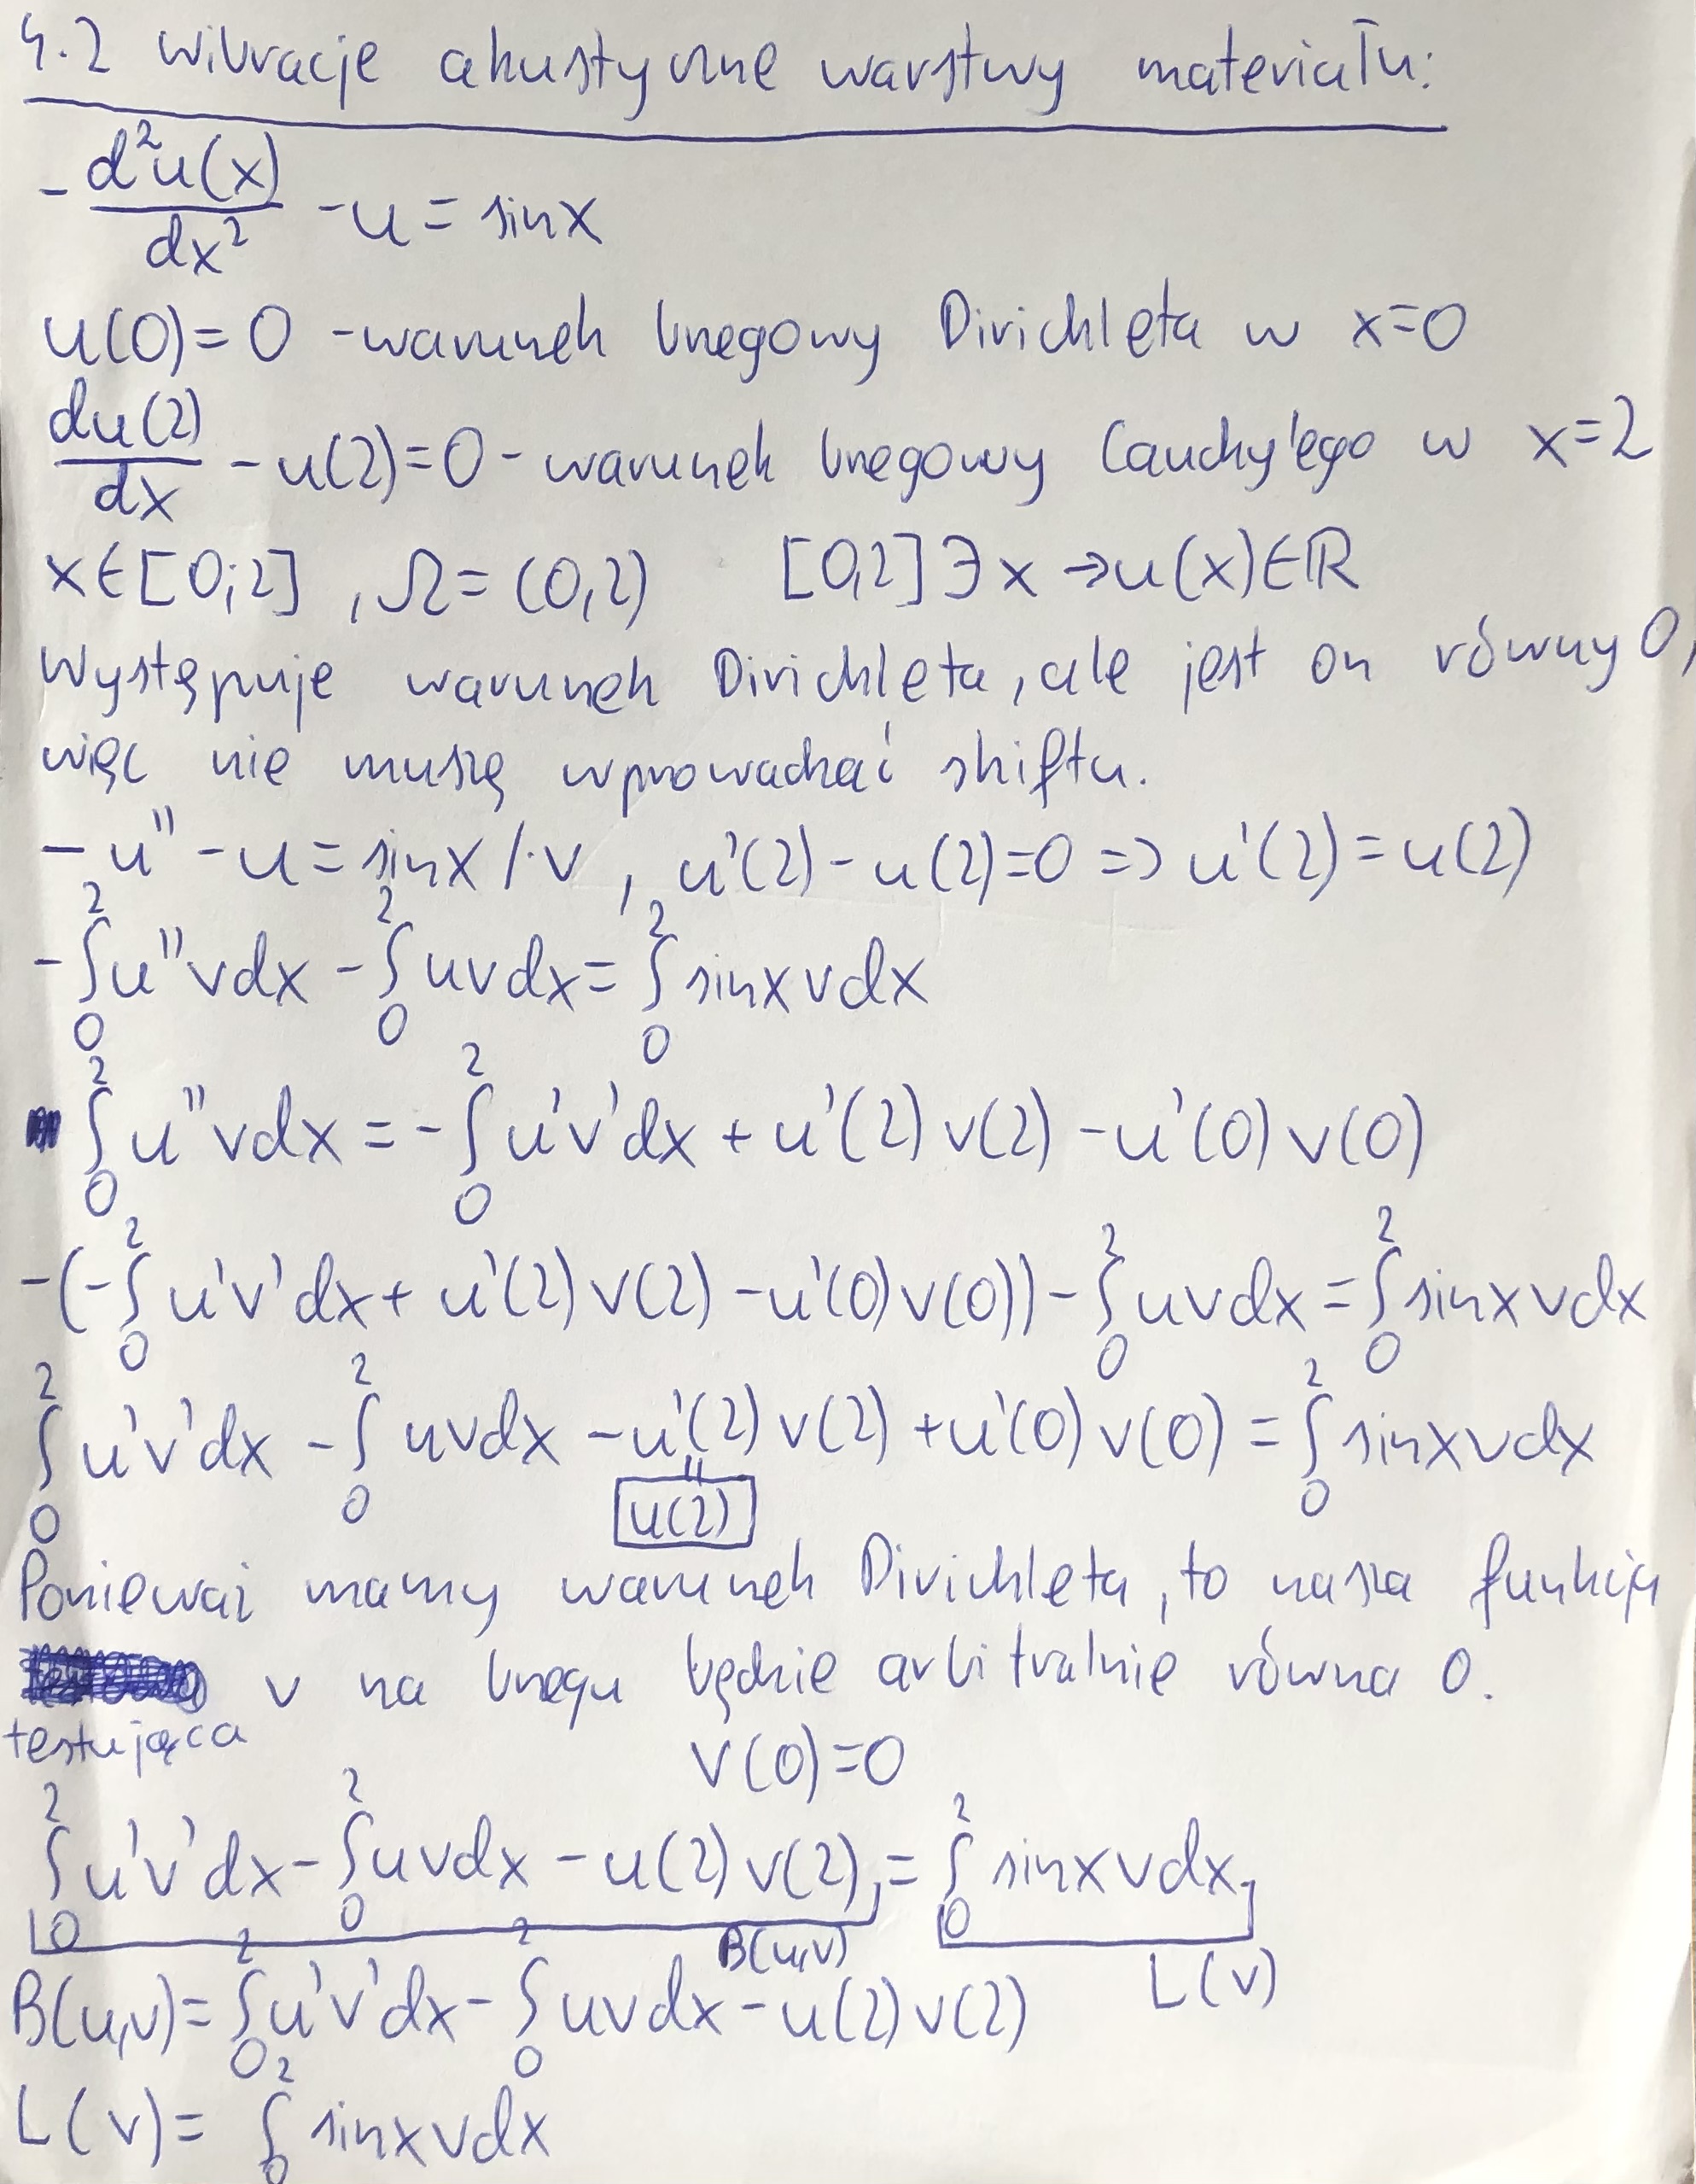 4.2 wibracje akustyczne warstwy materiału:
- d²u(x)/dx² - u = sinx
u(0)=0 - warunek brzegowy Dirichleta w x=0
du(2)/dx - u(2)=0 - warunek brzegowy Cauchy'ego w x=2
x∈[0;2] , Ω=(0,2) [0,2]∋x→u(x)∈ℝ
Występuje warunek Dirichleta, ale jest on równy 0,
więc nie muszę wprowadzać shiftu.
-u'' - u = sinx /·v , u'(2) - u(2)=0 => u'(2)=u(2)
-∫₀² u''vdx - ∫₀² uvdx = ∫₀² sinxvdx
∫₀² u''vdx = -∫₀² u'v'dx + u'(2)v(2) - u'(0)v(0)
-(-∫₀² u'v'dx + u'(2)v(2) - u'(0)v(0)) - ∫₀² uvdx = ∫₀² sinxvdx
∫₀² u'v'dx - ∫₀² uvdx - u'(2)v(2) + u'(0)v(0) = ∫₀² sinxvdx
"
u(2)
Ponieważ mamy warunek Dirichleta, to nasza funkcja
v na brzegu będzie arbitralnie równa 0.
testująca
v(0)=0
∫₀² u'v'dx - ∫₀² uvdx - u(2)v(2) = ∫₀² sinxvdx
B(u,v)
L(v)
B(u,v)= ∫₀² u'v'dx - ∫₀² uvdx - u(2)v(2)
L(v)= ∫₀² sinxvdx